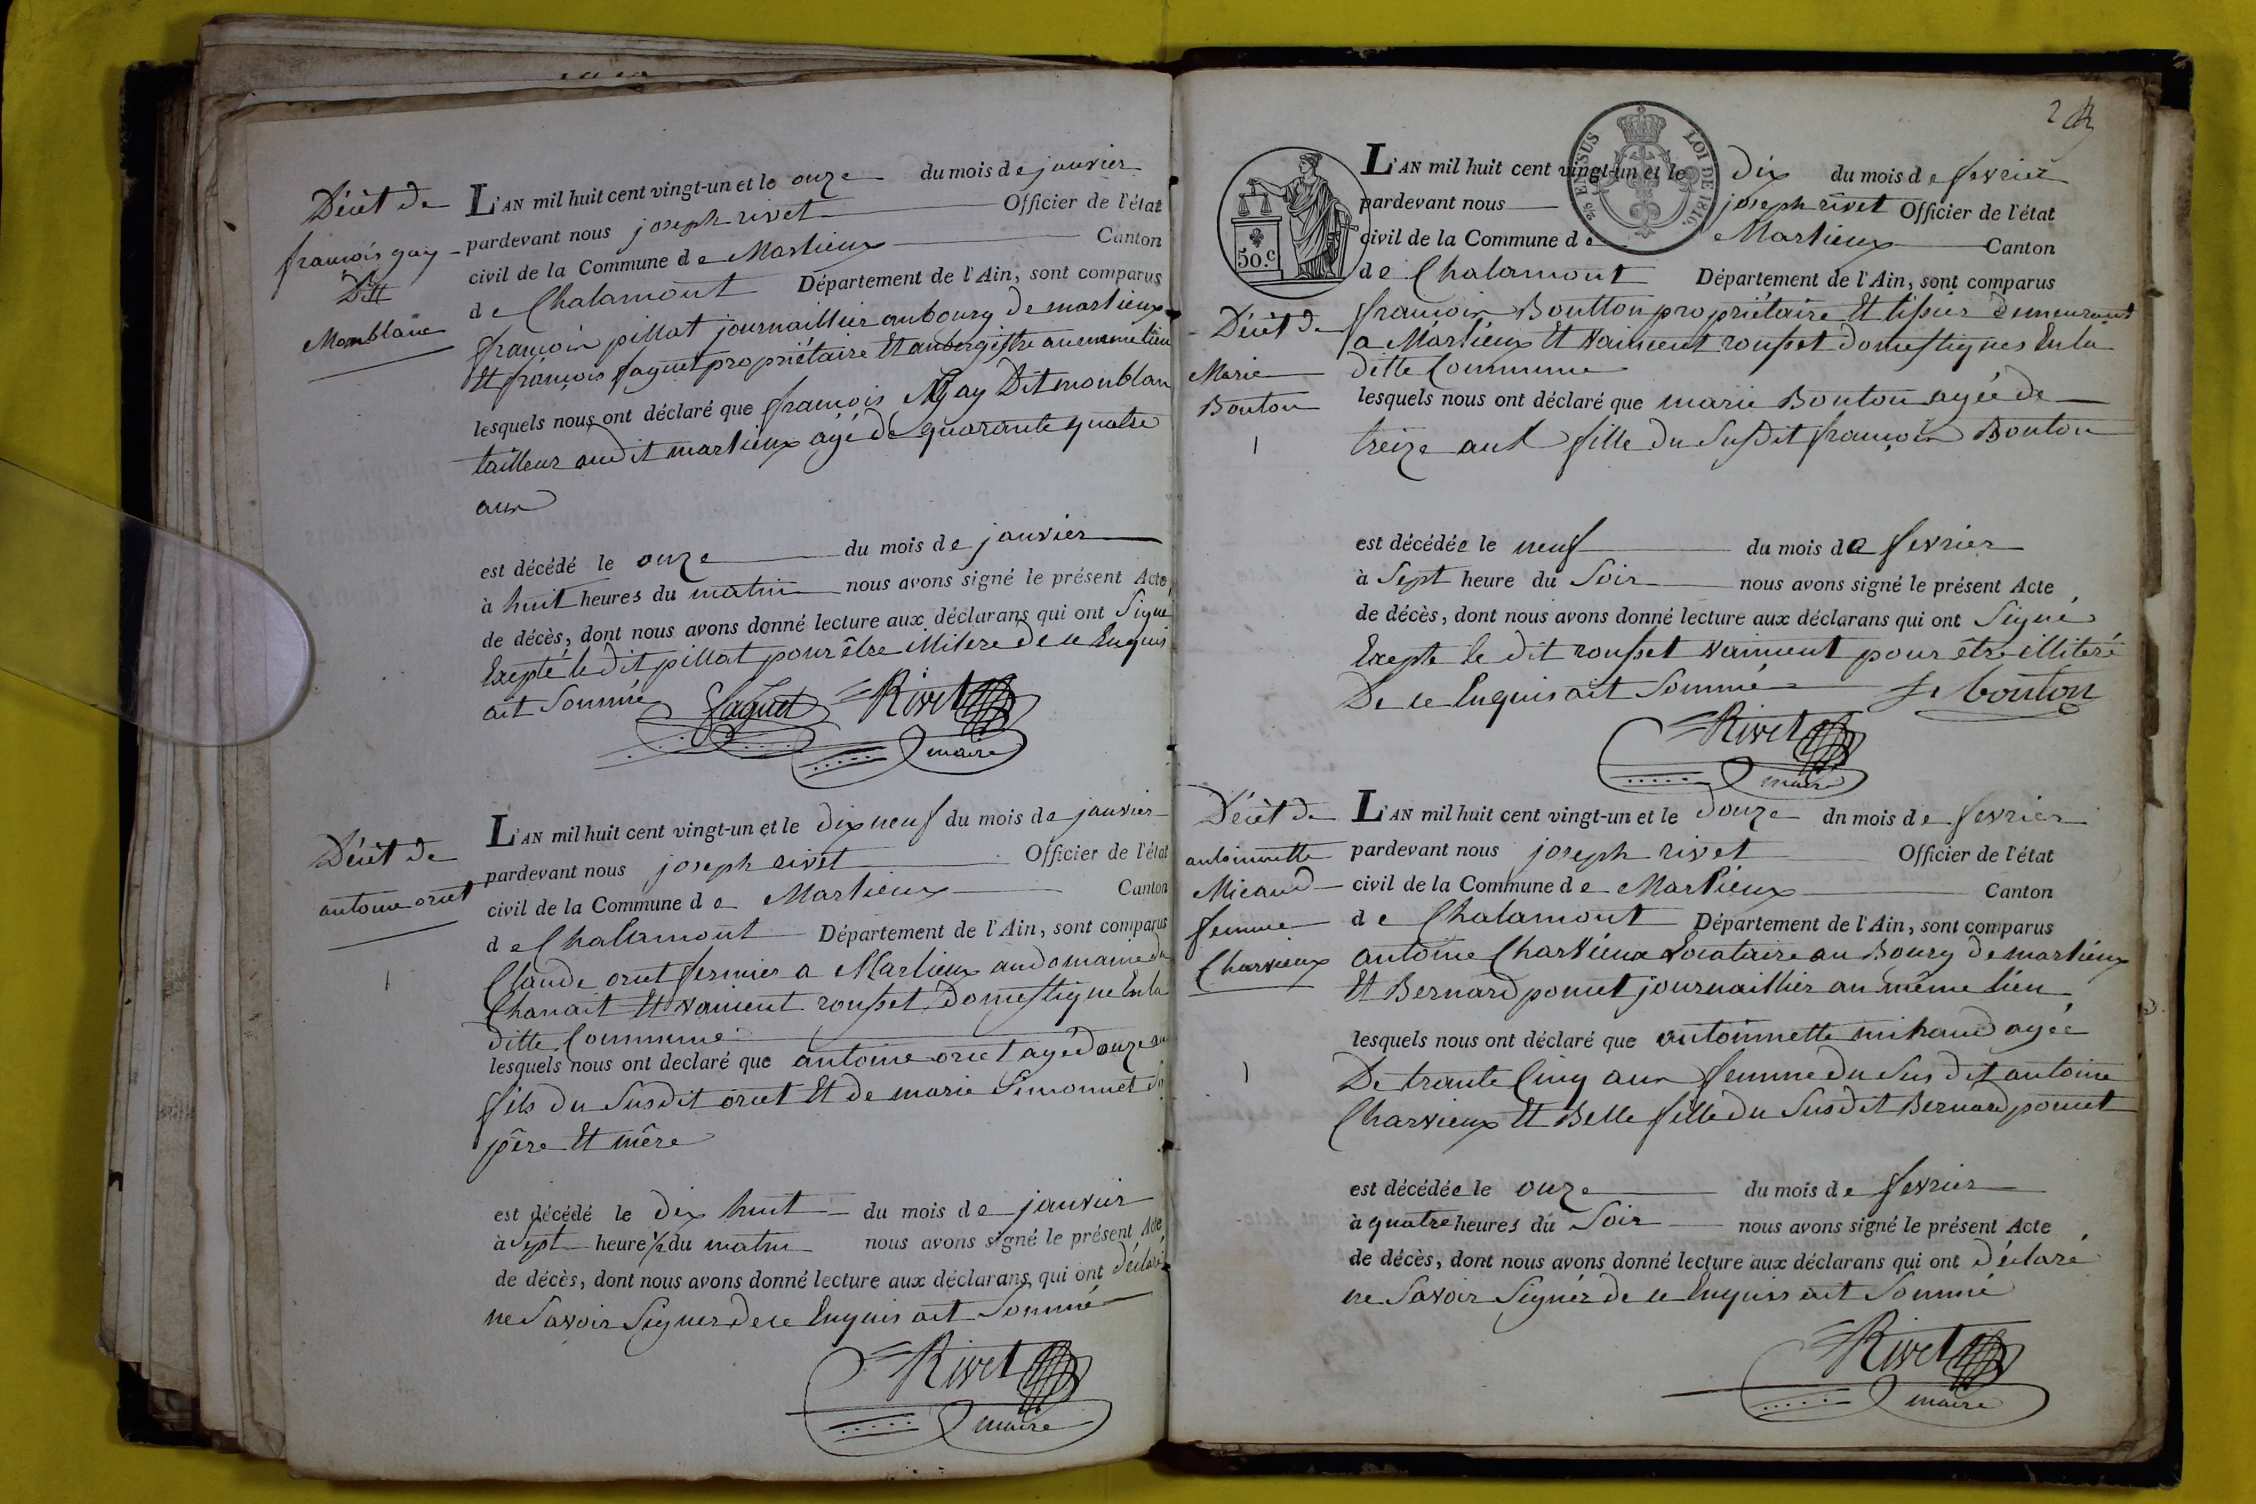 Décèt de
françois gay
Ditt
Monblanc
L'AN mil huit cent vingt-un et le onze du mois de janvier
pardevant nous joseph rivet Officier de l'état
civil de la Commune de Marlieux Canton
de Chalamont Département de l'Ain, sont comparus
françois pillat journaillier au bourg de marlieux
Et françois faguet propriétaire Et aubergiste au meme lieu
lesquels nous ont déclaré que françois Gay Dit monblan
tailleur audit marlieux agé de quarante quatre
ans
est décédé le onze du mois de janvier
à huit heures du matin nous avons signé le présent Acte
de décès, dont nous avons donné lecture aux déclarans qui ont Signé
Exepté le dit pillat pour être illitere de ce Enquis
ait Sommé faguet Rivet
maire
Décèt de
antoine oriet
1
L'AN mil huit cent vingt-un et le dix neuf du mois de janvier
pardevant nous joseph rivet Officier de l'état
civil de la Commune de Marlieux Canton
de Chalamont Département de l'Ain, sont comparus
Claude oriet fermier a Marlieux au domaine du
Chanait Et vaincent rousset Domestique En la
ditte Commune
lesquels nous ont déclaré que antoine oriet agé d'onze an
fils du Susdit oriet Et de marie Simonnet
père Et mère
est décédé le dix huit du mois de janvier
à Sept heure ½ du matin nous avons signé le présent Acte
de décès, dont nous avons donné lecture aux déclarans qui ont déclaré
ne Savoir Signer de ce Enquis ait Sommé
Rivet
maire
2
50.c
EN SUS
LOI DE 1816.
Décèt de
Marie
Bouton
1
L'AN mil huit cent vingt-un et le dix du mois de fevrier
pardevant nous joseph rivet Officier de l'état
civil de la Commune de Marlieux Canton
de Chalamont Département de l'Ain, sont comparus
françois Boutton propriétaire Et tissier demeurant
a Marlieux Et vaincent rousset domestiques En la
ditte Commune
lesquels nous ont déclaré que marie Bouton agée de
treize ans fille du Susdit françois Bouton
est décédée le neuf du mois de fevrier
à Sept heure du Soir nous avons signé le présent Acte
de décès, dont nous avons donné lecture aux déclarans qui ont Signé
Exepte le dit rousset vaincent pour être illiteré
De ce Enquis ait Sommé bouton
Rivet
maire
Décèt de
antoinnette
Micaud
femme
Charvieux
1
L'AN mil huit cent vingt-un et le douze dn mois de fevrier
pardevant nous joseph rivet Officier de l'état
civil de la Commune de Marlieux Canton
de Chalamont Département de l'Ain, sont comparus
antoine Charvieux Locataire au Bourg de marlieux
Et Bernard pomet journaillier au même lieu
lesquels nous ont déclaré que antoinnette mikaud agée
De trante Cinq ans femme du Sus dit antoine
Charvieux Et Belle fille du Susdit Bernard pomet
est décédée le onze du mois de fevrier
à quatre heures du Soir nous avons signé le présent Acte
de décès, dont nous avons donné lecture aux déclarans qui ont déclaré
ne Savoir Signér de ce Enquiss ait Sommé
Rivet
maire